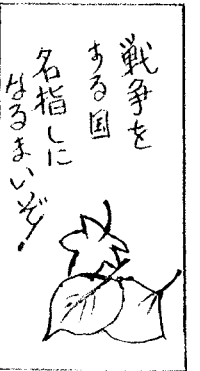 戦争を
する国
名指しに
なるまいぞ!